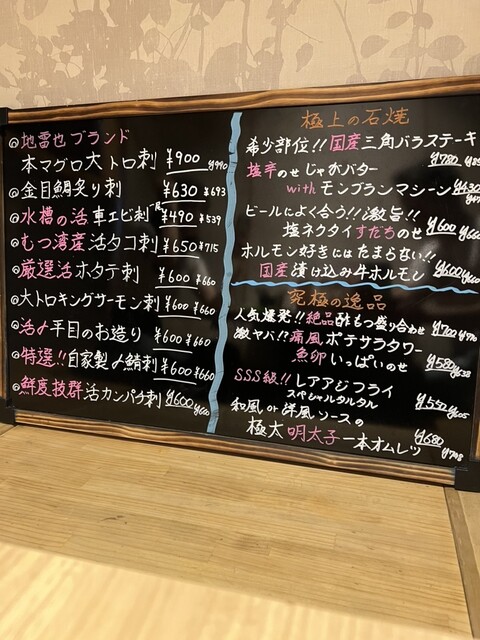 ◎地雷也ブランド
本マグロ大トロ刺 ¥900 ¥990
◎金目鯛炙り刺 ¥630 ¥693
◎水槽の活車エビ刺 ¥490 ¥539
◎むつ湾産活タコ刺 ¥650 ¥715
◎厳選活ホタテ刺 ¥600 ¥660
◎大トロキングサーモン刺 ¥600 ¥660
◎活〆平目のお造り ¥600 ¥660
◎特選!!自家製〆鯖刺 ¥600 ¥660
◎鮮度抜群活カンパチ刺 ¥600 ¥660
極上の石焼
希少部位!!国産三角バラステーキ
¥780
塩辛のせじゃがバター
withモンブランマシーン ¥430
ビールによく合う!!激旨!!
塩ネクタイすだちのせ ¥600 ¥660
ホルモン好きにはたまらない!!
国産漬け込み牛ホルモン ¥600 ¥660
究極の逸品
人気爆発!!絶品酢もつ盛り合わせ ¥700 ¥770
激ヤバ!?痛風ポテサラタワー
魚卵いっぱいのせ ¥580 ¥638
SSS級!!レアアジフライ
スペシャルタルタル ¥550 ¥605
和風or洋風ソースの
極太明太子一本オムレツ ¥680 ¥748